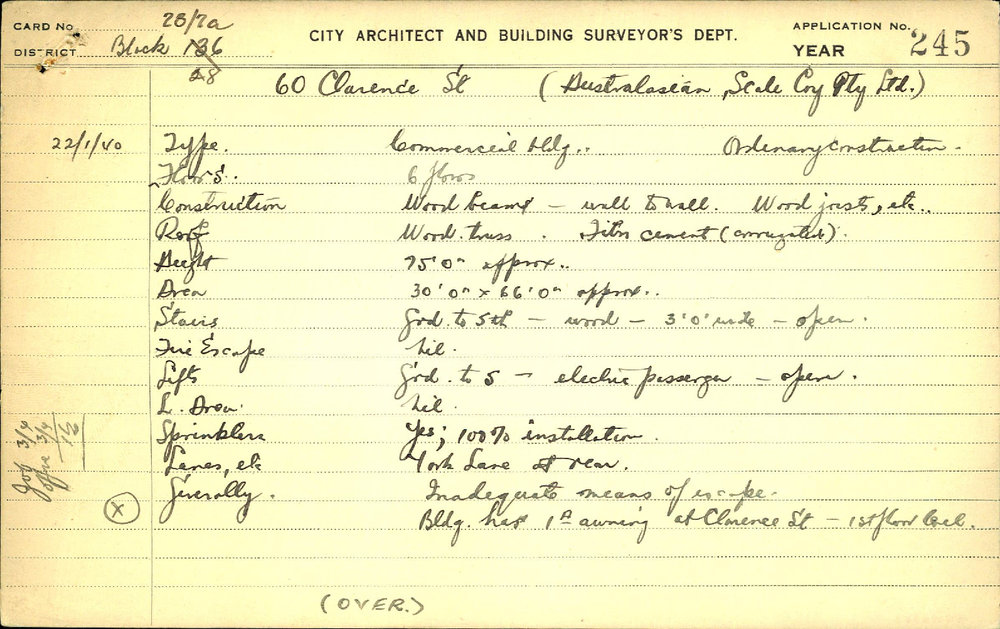 CARD No. 28/7a
CITY ARCHITECT AND BUILDING SURVEYOR'S DEPT.
APPLICATION No. 245
DISTRICT Block 136
YEAR
28
60 Clarence St (Australasian Scale Coy Pty Ltd.)
22/1/40 Type. Commercial bldg.. Ordinary construction.
Floors.. 6 floors
Construction Wood beams – wall to wall. Wood joists, etc..
Roof Wood truss. Fibro cement (corrugated).
Height 75'0" approx..
Area 30'0" x 66'0" approx..
Stairs Grd. to 5th – wood – 3'0" wide – open.
Fire Escape Nil.
Lifts Grd. to 5 – electric passenger – open.
L. Area. Nil.
Sprinklers Yes; 100% installation.
Lanes, etc York Lane at rear.
Generally. Inadequate means of escape.
Bldg. has 1 awning at Clarence St – 1st floor level.
3/4
3/4
15
X
(OVER.)